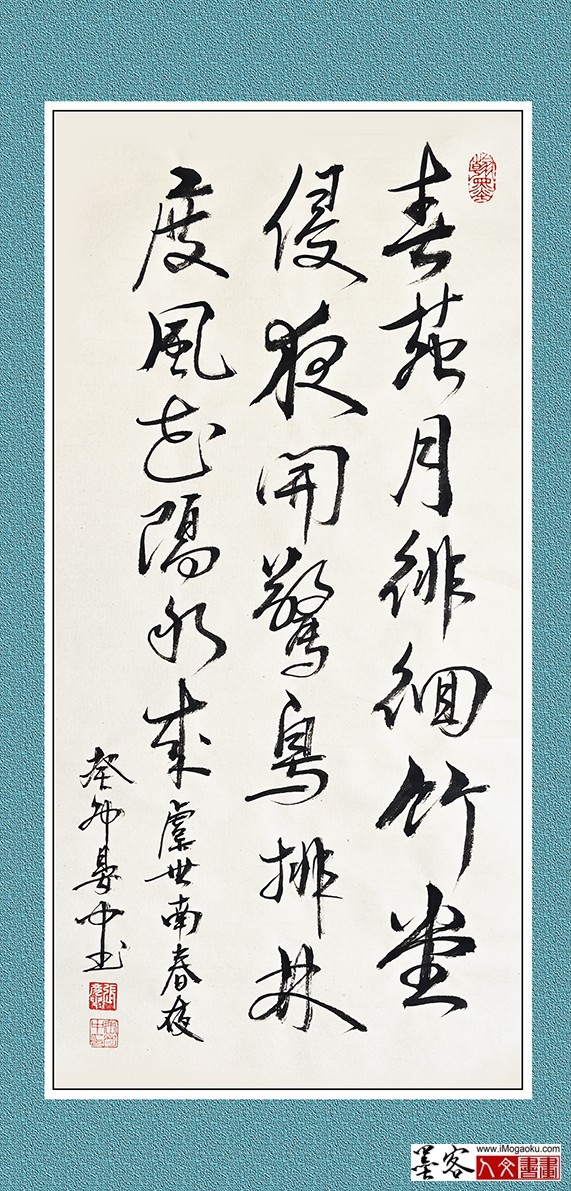 翰墨
春苑月徘徊竹堂
侵夜開驚鳥排林
度風花隔水来
虞世南春夜
癸卯 中书
墨客
www.iMogaoku.com
人文書畫